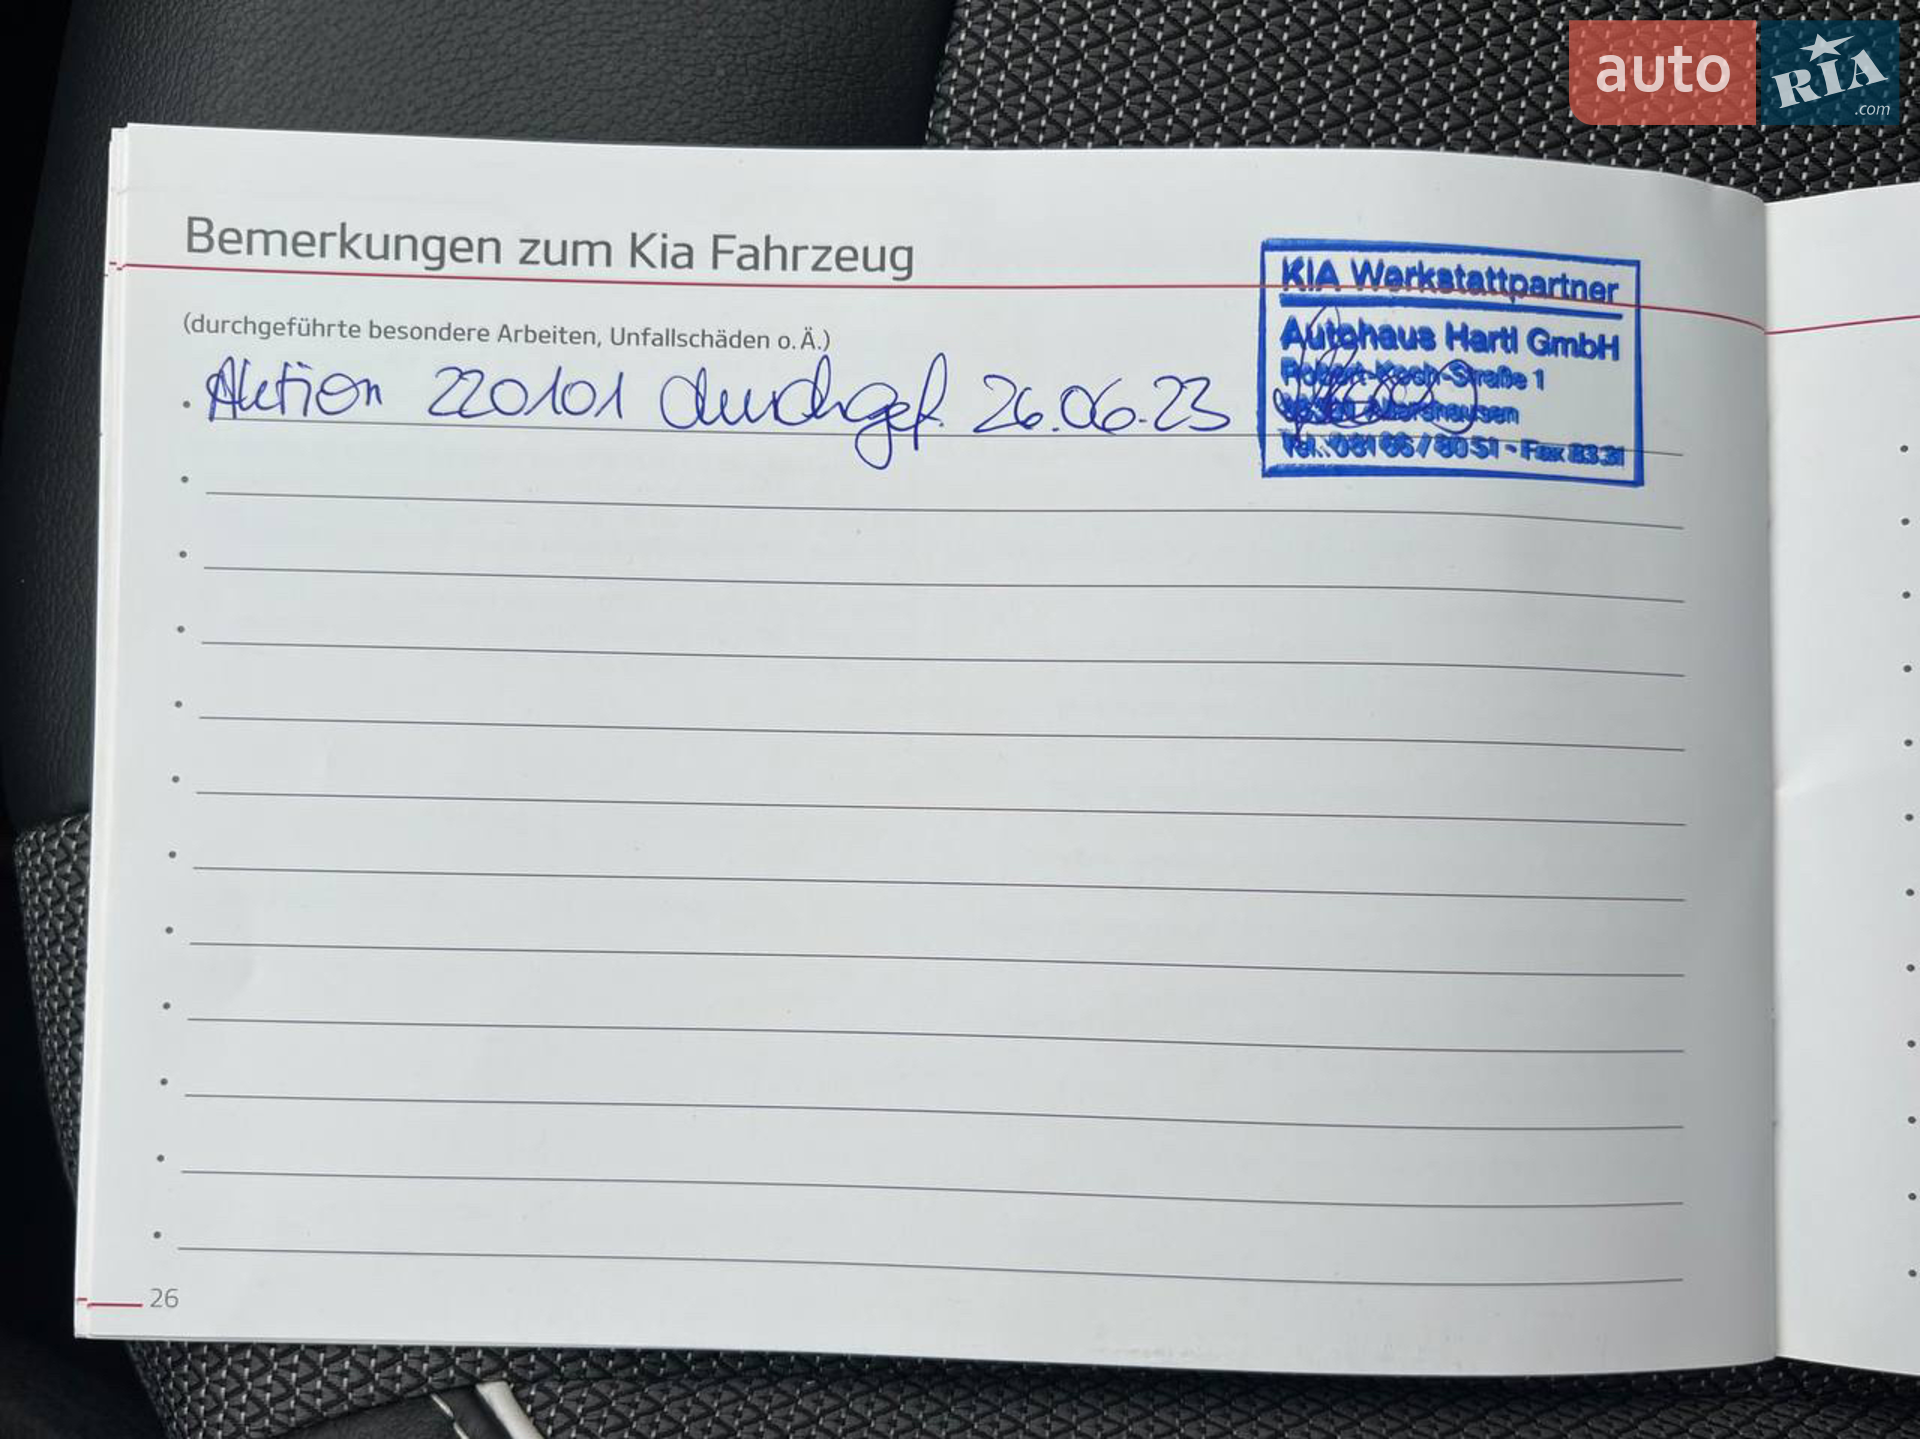 auto RIA .com
Bemerkungen zum Kia Fahrzeug
(durchgeführte besondere Arbeiten, Unfallschäden o. Ä.)
Aktion 220101 durchgef. 26.06.23
KIA Werkstattpartner
Autohaus Hartl GmbH
Robert-Koch-Straße 1
Tel.: 08166/8051 - Fax 8331
26